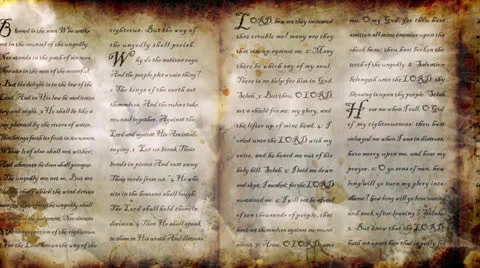 the man Who walks
not in the counsel of the ungodly,
Nor stands in the path of sinners
Nor sits in the seat of the scornful
But his delight is in the law of the
Lord, And in His law he meditates
He shall be like a
planted by the rivers of water,
That brings forth its fruit in its season
Whose leaf also shall not wither;
And whatever he does shall prosper
The ungodly are not so, But are
chaff which the wind drives
the ungodly shall
the judgment, Nor sinners
congregation of the righteous
For the Lord knows the way of the
righteous, But the way of the
ungodly shall perish.
Why do the nations rage
And the people plot vain thing?
The kings of the earth set
themselves, And the rulers take
counsel together, Against the
Lord and against His Anointed,
saying, 3: Let us break Their
bonds in pieces And cast away
Their cords from us. 4: He who
sits in the heavens shall laugh;
The Lord shall hold them in
derision. 5: Then He shall speak
to them in His wrath And distress
LORD, how are they increased
that trouble me! many are they
that rise up against me. 2: Many
there be which say of my soul,
There is no help for him in God.
Selah. 3: But thou, O LORD,
art a shield for me; my glory, and
the lifter up of mine head. 4: I
cried unto the LORD with my
voice, and he heard me out of his
holy hill. Selah. 5: I laid me down
and slept; I awaked; for the LORD
sustained me. 6: I will not be afraid
of ten thousands of people, that
have set themselves against me round
about. 7: Arise, O LORD;
me, O my God: for thou hast
smitten all mine enemies upon the
cheek bone; thou hast broken the
teeth of the ungodly. 8: Salvation
belongeth unto the LORD: thy
blessing is upon thy people. Selah.
Hear me when I call, O God
of my righteousness: thou hast
enlarged me when I was in distress;
have mercy upon me, and hear my
prayer. 2: O ye sons of men, how
long will ye turn my glory into
shame? how long will ye love vanity,
and seek after leasing? Selah.
3: But know that the LORD
hath set apart him that is godly for